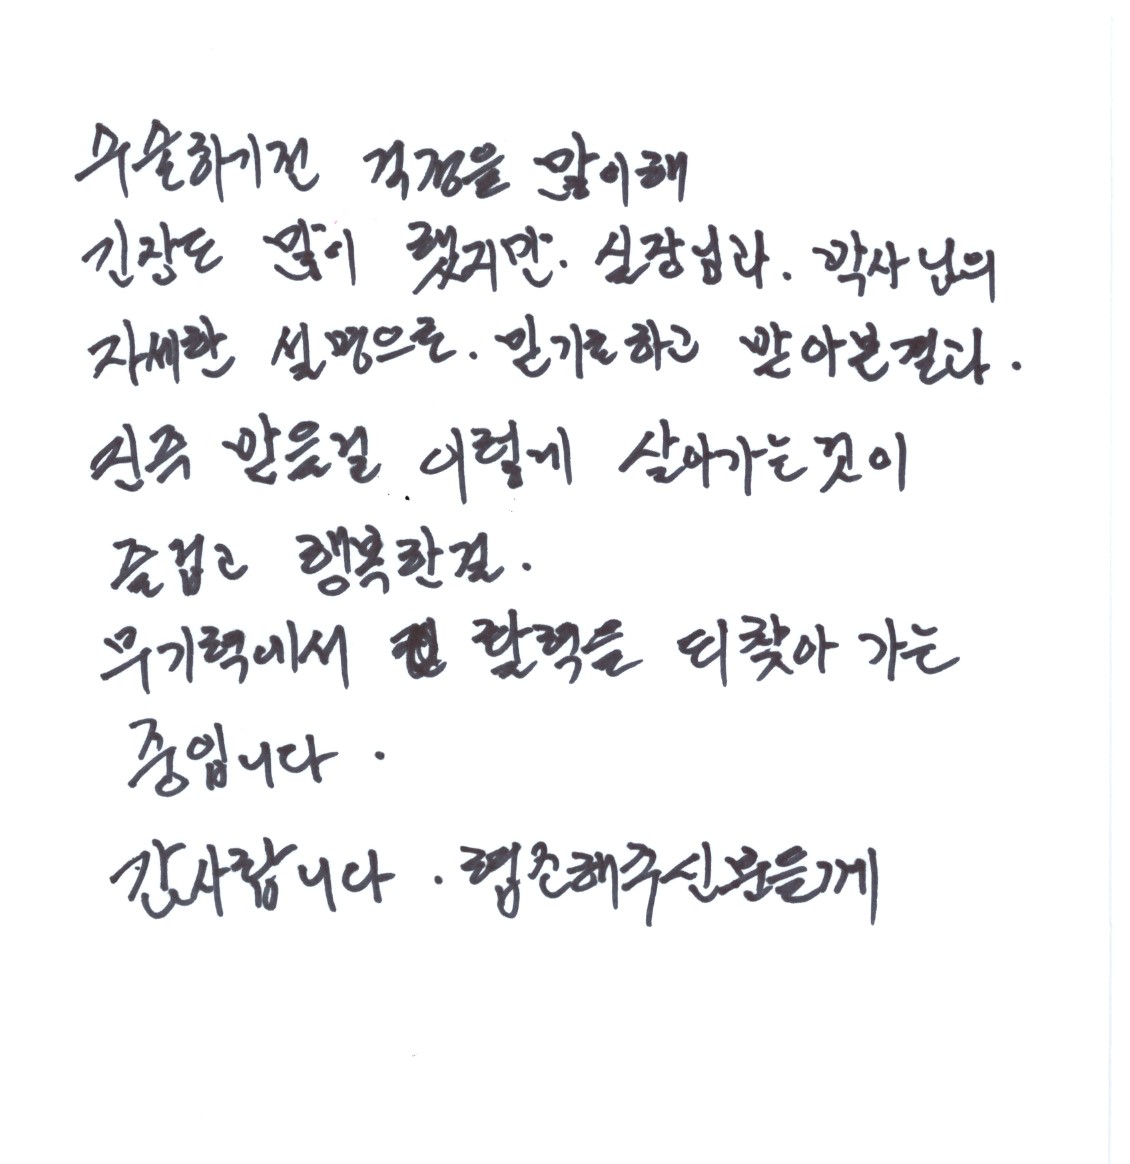 수술하기전 걱정을 많이해
긴장도 많이 했지만. 실장님과. 박사님의
자세한 설명으로. 믿기로하고 받아본결과.
진즉 받을걸 이렇게 살아가는것이
즐겁고 행복한걸.
무기력에서 활력을 되찾아 가는
중입니다.
감사합니다. 협조해주신분들께